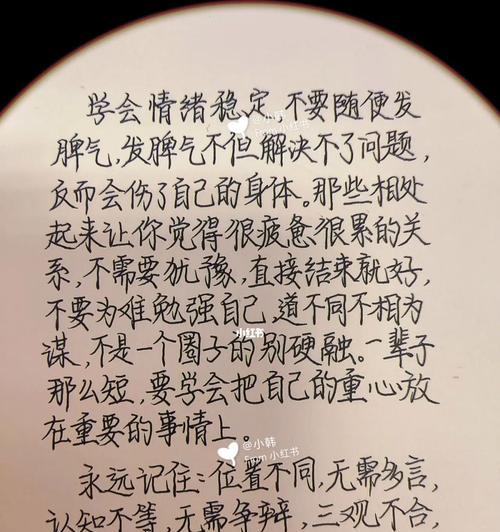 学会情绪稳定,不要随便发
脾气,发脾气不但解决不了问题,
反而会伤了自己的身体。那些相处
起来让你觉得很疲惫、很累的关
系,不需要犹豫,直接结束就好,
不要为难勉强自己,道不同不相为
谋,不是一个圈子的别硬融。一辈子
那么短,要学会把自己的重心放
在重要的事情上。
永远记住:位置不同,无需多言,
认知不等,无需争辩,三观不合
@小韩
From 小红书
小红书
@小韩
From 小红书